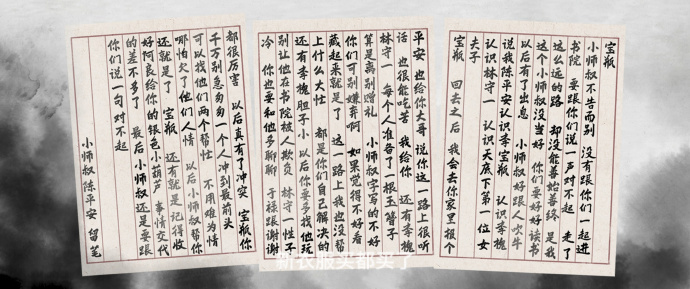 宝瓶
小师叔不告而别 没有跟你们一起进
书院 要跟你们说一声对不起 走了
这么远的路 却没能善始善终 是我
这个小师叔没当好 你们要好好读书
以后有了出息 小师叔好跟人吹牛
说我陈平安认识李宝瓶 认识李槐
认识林守一 认识天底下第一位女
夫子
宝瓶 回去之后 我会去你家里报个
平安 也给你大哥说 你这一路上很听
话 也很能吃苦 我给你 还有李槐
林守一 每个人准备了一根玉簪子
算是离别赠礼 小师叔字写的不好
你们可别嫌弃啊 如果觉得不好看
藏起来就是了 这一路上我也没帮
上什么大忙 都是你们自己解决的
还有李槐胆子小 以后你要多找他玩
别让他在书院被人欺负 林守一性子
冷 你也要和他多聊聊 于禄跟谢谢
都很厉害 以后真有了冲突 宝瓶你
千万别急匆匆一个人冲到最前头
可以找他们两个帮忙 不用难为情
哪怕欠了他们人情 以后小师叔帮你
还就是了 宝瓶 还有就是记得收
好阿良给你的银色小葫芦 事情交代
的差不多了 最后 小师叔还是要跟
你们说一句 对不起
小师叔陈平安 留笔
新衣服买都买了